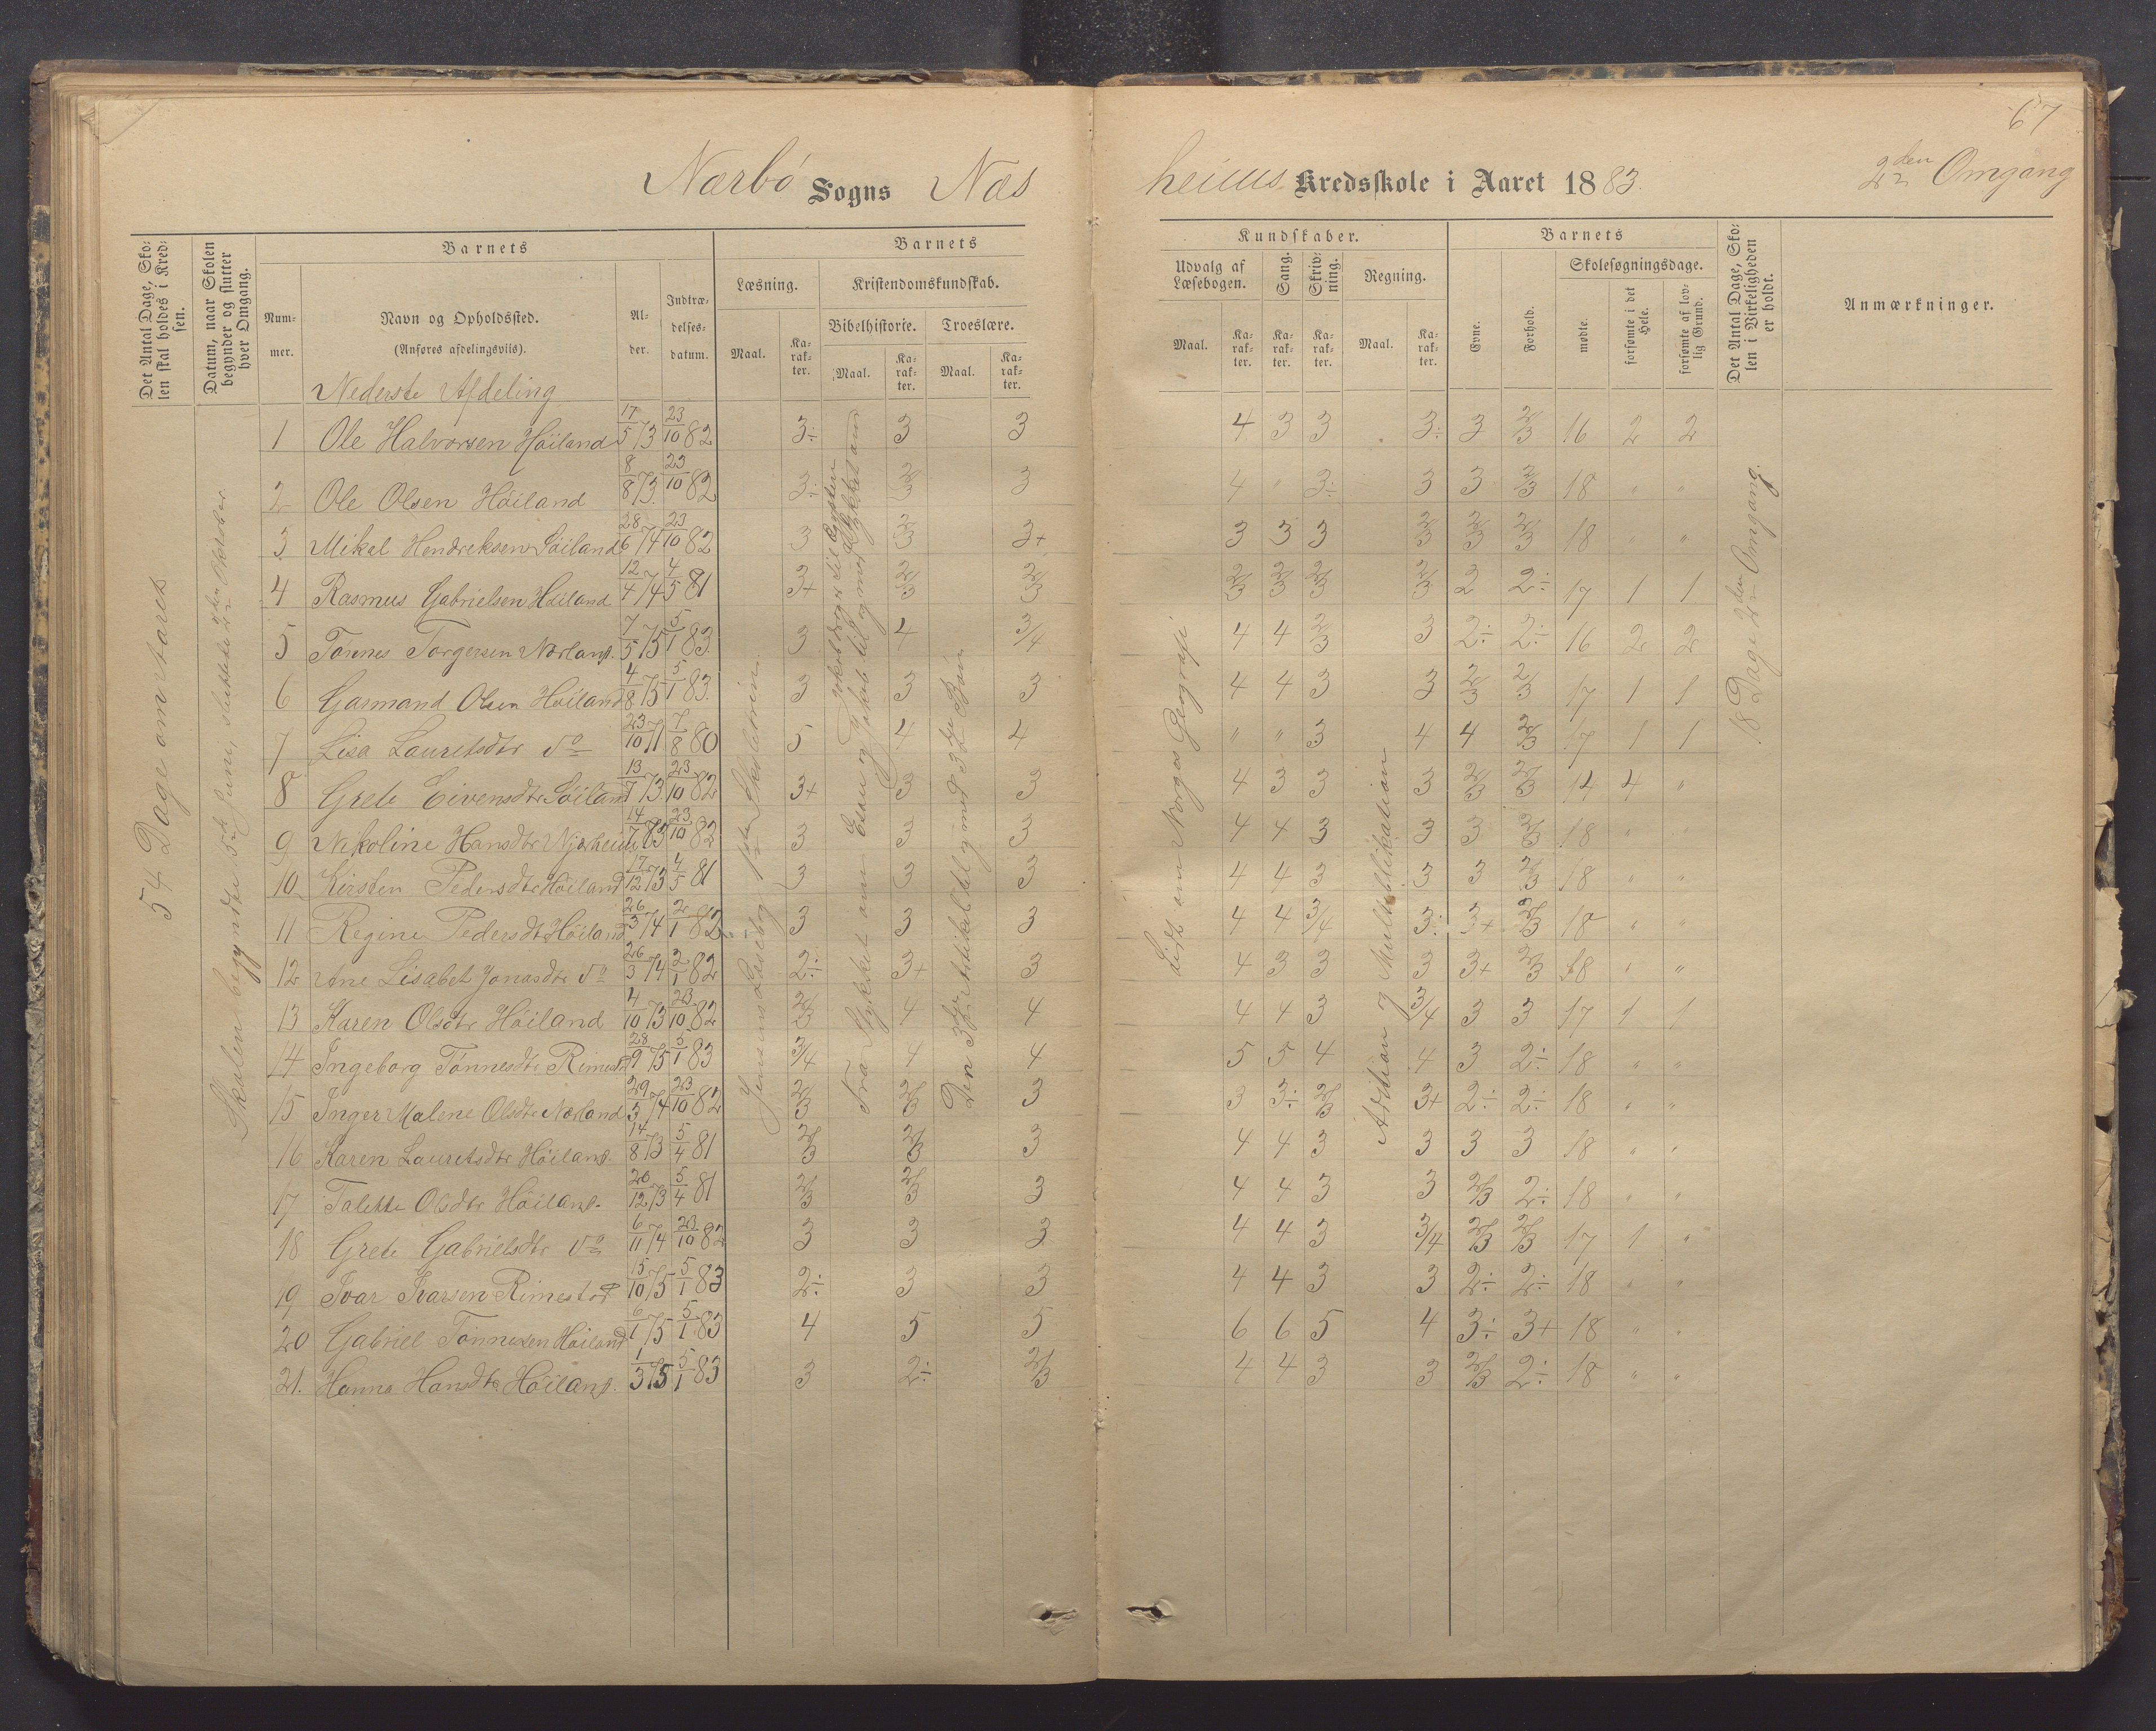 67
Nærbø Sogns Næsheims Kredsskole i Aaret 1883. 2den Omgang
Det Antal Dage, Skolen skal holdes i Kredsen.
Datum, naar Skolen begynder og slutter hver Omgang.
Barnets
Nummer.
Navn og Opholdssted.
(Anføres afdelingsviis).
Alder.
Indtrædelsesdatum.
Barnets
Læsning.
Maal.
Karakter.
Kristendomskundskab.
Bibelhistorie.
Maal.
Karakter.
Troeslære.
Maal.
Karakter.
Kundskaber.
Udvalg af Læsebogen.
Maal.
Karakter.
Sang.
Karakter.
Skrivning.
Karakter.
Regning.
Maal.
Karakter.
Barnets
Evne.
Forhold.
Skolesøgningsdage.
mødte.
forsømte i det Hele.
forsømte af lovlig Grund.
Det Antal Dage, Skolen i Virkeligheden er holdt.
Anmærkninger.
54 Dage om Aaret
Skolen begyndte 5te Juni, sluttede 2den Oktober.
Jensens Læsebog 1ste Skoletrin.
Fra Stykket om Esau og Jakob til og med Stykket om
Den 3die Artikel til og med 3die Bøn
Lidt om Norges Geografi
Adition og Multiplikation
18 Dage 2den Omgang.
Nederste Afdeling
1 Ole Halvorsen Høiland 17/5 73 23/10 82 3÷ 3 3 4 3 3 3÷ 3 2/3 16 2 2
2 Ole Olsen Høiland 8/8 73 23/10 82 3÷ 2/3 3 4 " 3÷ 3 3 2/3 18 " "
3 Mikal Hendreksen Søiland 28/6 74 23/10 82 3 2/3 3+ 3 3 3 2/3 2/3 2/3 18 " "
4 Rasmus Gabrielsen Høiland 12/4 74 4/5 81 3+ 2/3 2/3 2/3 2/3 2/3 2/3 2 2÷ 17 1 1
5 Tønnes Torgersen Nærland. 7/5 75 5/1 83. 3 4 3/4 4 4 2/3 3 2÷ 2÷ 16 2 2
6 Garmand Olsen Høiland 4/8 75 5/1 83. 3 3 3 4 4 3 3 2/3 2/3 17 1 1
7 Lisa Lauritsdtr do 23/10 71 7/8 80 5 4 4 " " 3 4 4 2/3 17 1 1
8 Grete Eivensdtr Søiland 13/7 73 23/10 82 3+ 3 3 4 3 3 3 2/3 2/3 14 4 "
9 Nikoline Hansdtr Njærheim 14/7 83 23/10 82 3 3 3 4 4 3 3 3 2/3 18 " "
10 Kirsten Pedersdtr Høiland 17/12 73 4/5 81 3 3 3 4 4 3 3 3 2/3 18 " "
11 Regine Pedersdt Høiland 26/3 74 2/1 82 3 3 3 4 4 3/4 3÷ 3+ 2/3 18 " "
12 Ane Lisabet Jonasdtr do 26/3 74 2/1 82 2÷ 3+ 3 4 3 3 3 3+ 2/3 18 " "
13 Karen Olsdtr Høiland 4/10 73 23/10 82 2/3 4 4 4 4 3 3/4 3 3 17 1 1
14 Ingeborg Tønnesdtr Rimestd 28/9 75 5/1 83 3/4 4 4 5 5 4 4 3 2÷ 18 " "
15 Inger Malene Olsdtr Nærland 29/3 74 23/10 82 2/3 2/3 3 3 3÷ 2/3 3+ 2÷ 2÷ 18 " "
16 Karen Lauritsdtr Høiland. 14/8 73 5/4 81 2/3 2/3 3 4 4 3 3 3 3 18 " "
17 Talette Olsdtr Høiland. 20/12 73 5/4 81 2/3 2/3 3 4 4 3 3 2/3 2÷ 18 " "
18 Grete Gabrielsdtr do 6/11 74 23/10 82 3 3 3 4 4 3 3/4 2/3 2/3 17 1 "
19 Ivar Ivarsen Rimestad 15/10 75 5/1 83 2÷ 3 3 4 4 3 3 2÷ 2÷ 18 " "
20 Gabriel Tønnesen Høiland 6/1 75 5/1 83 4 5 5 6 6 5 4 3÷ 3+ 18 " "
21. Hanna Hansdtr Høiland. 1/3 75 5/1 83 3 2÷ 2/3 4 4 3 3 2/3 2÷ 18 " "